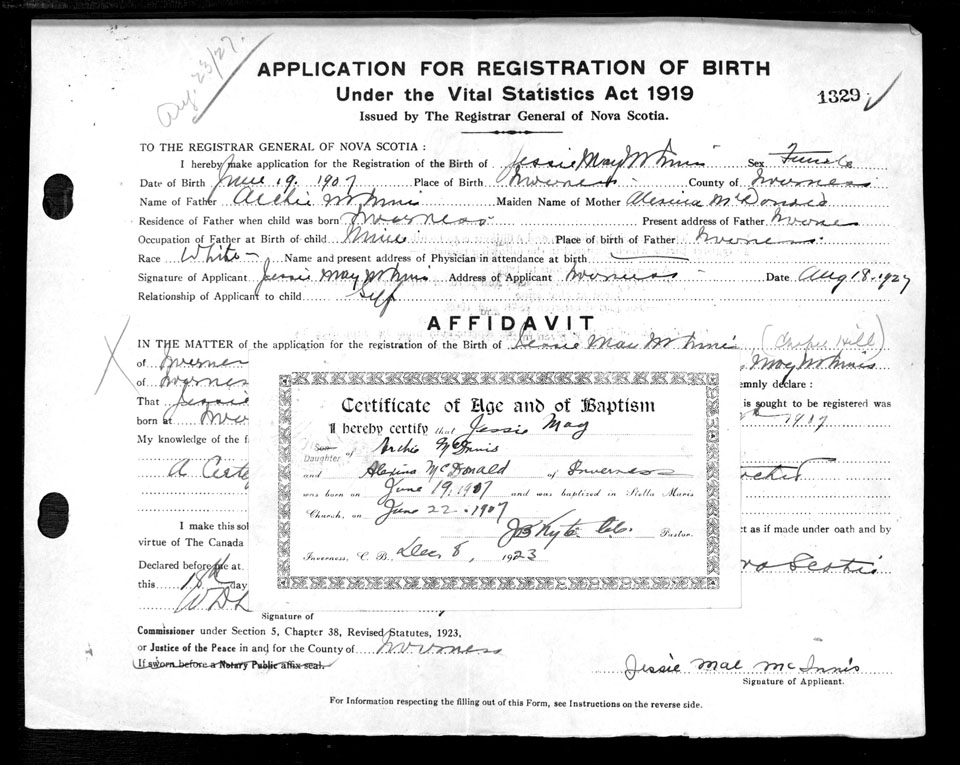 Aug. 23/27.
APPLICATION FOR REGISTRATION OF BIRTH
Under the Vital Statistics Act 1919
1329
Issued by The Registrar General of Nova Scotia.
TO THE REGISTRAR GENERAL OF NOVA SCOTIA :
I hereby make application for the Registration of the Birth of Jessie May McInnis Sex Female
Date of Birth June 19, 1907 Place of Birth Inverness County of Inverness
Name of Father Archie McInnis Maiden Name of Mother McDonald
Residence of Father when child was born Inverness Present address of Father
Occupation of Father at Birth of child Place of birth of Father Inverness.
Race White Name and present address of Physician in attendance at birth
Signature of Applicant Jessie May McInnis Address of Applicant Inverness Date Aug 18. 1927
Relationship of Applicant to child Self
AFFIDAVIT
IN THE MATTER of the application for the registration of the Birth of Jessie Mae McInnis
of May McInnis
of emnly declare :
That Jessie is sought to be registered was
born at
My knowledge of the f
A
I make this sol ct as if made under oath and by
virtue of The Canada
Declared before me at
this 18th day
Certificate of Age and of Baptism
I hereby certify that Jessie May
Son
Daughter of Archie McInnis
and Alexina McDonald of Inverness
was born on June 19, 1907 and was baptized in Stella Maris
Church, on June 22. 1907
Pastor.
Inverness, C. B., Dec. 8, 1923
Signature of
Commissioner under Section 5, Chapter 38, Revised Statutes, 1923,
or Justice of the Peace in and for the County of Inverness
(If sworn before a Notary Public affix seal.
Jessie Mae McInnis
Signature of Applicant.
For Information respecting the filling out of this Form, see Instructions on the reverse side.